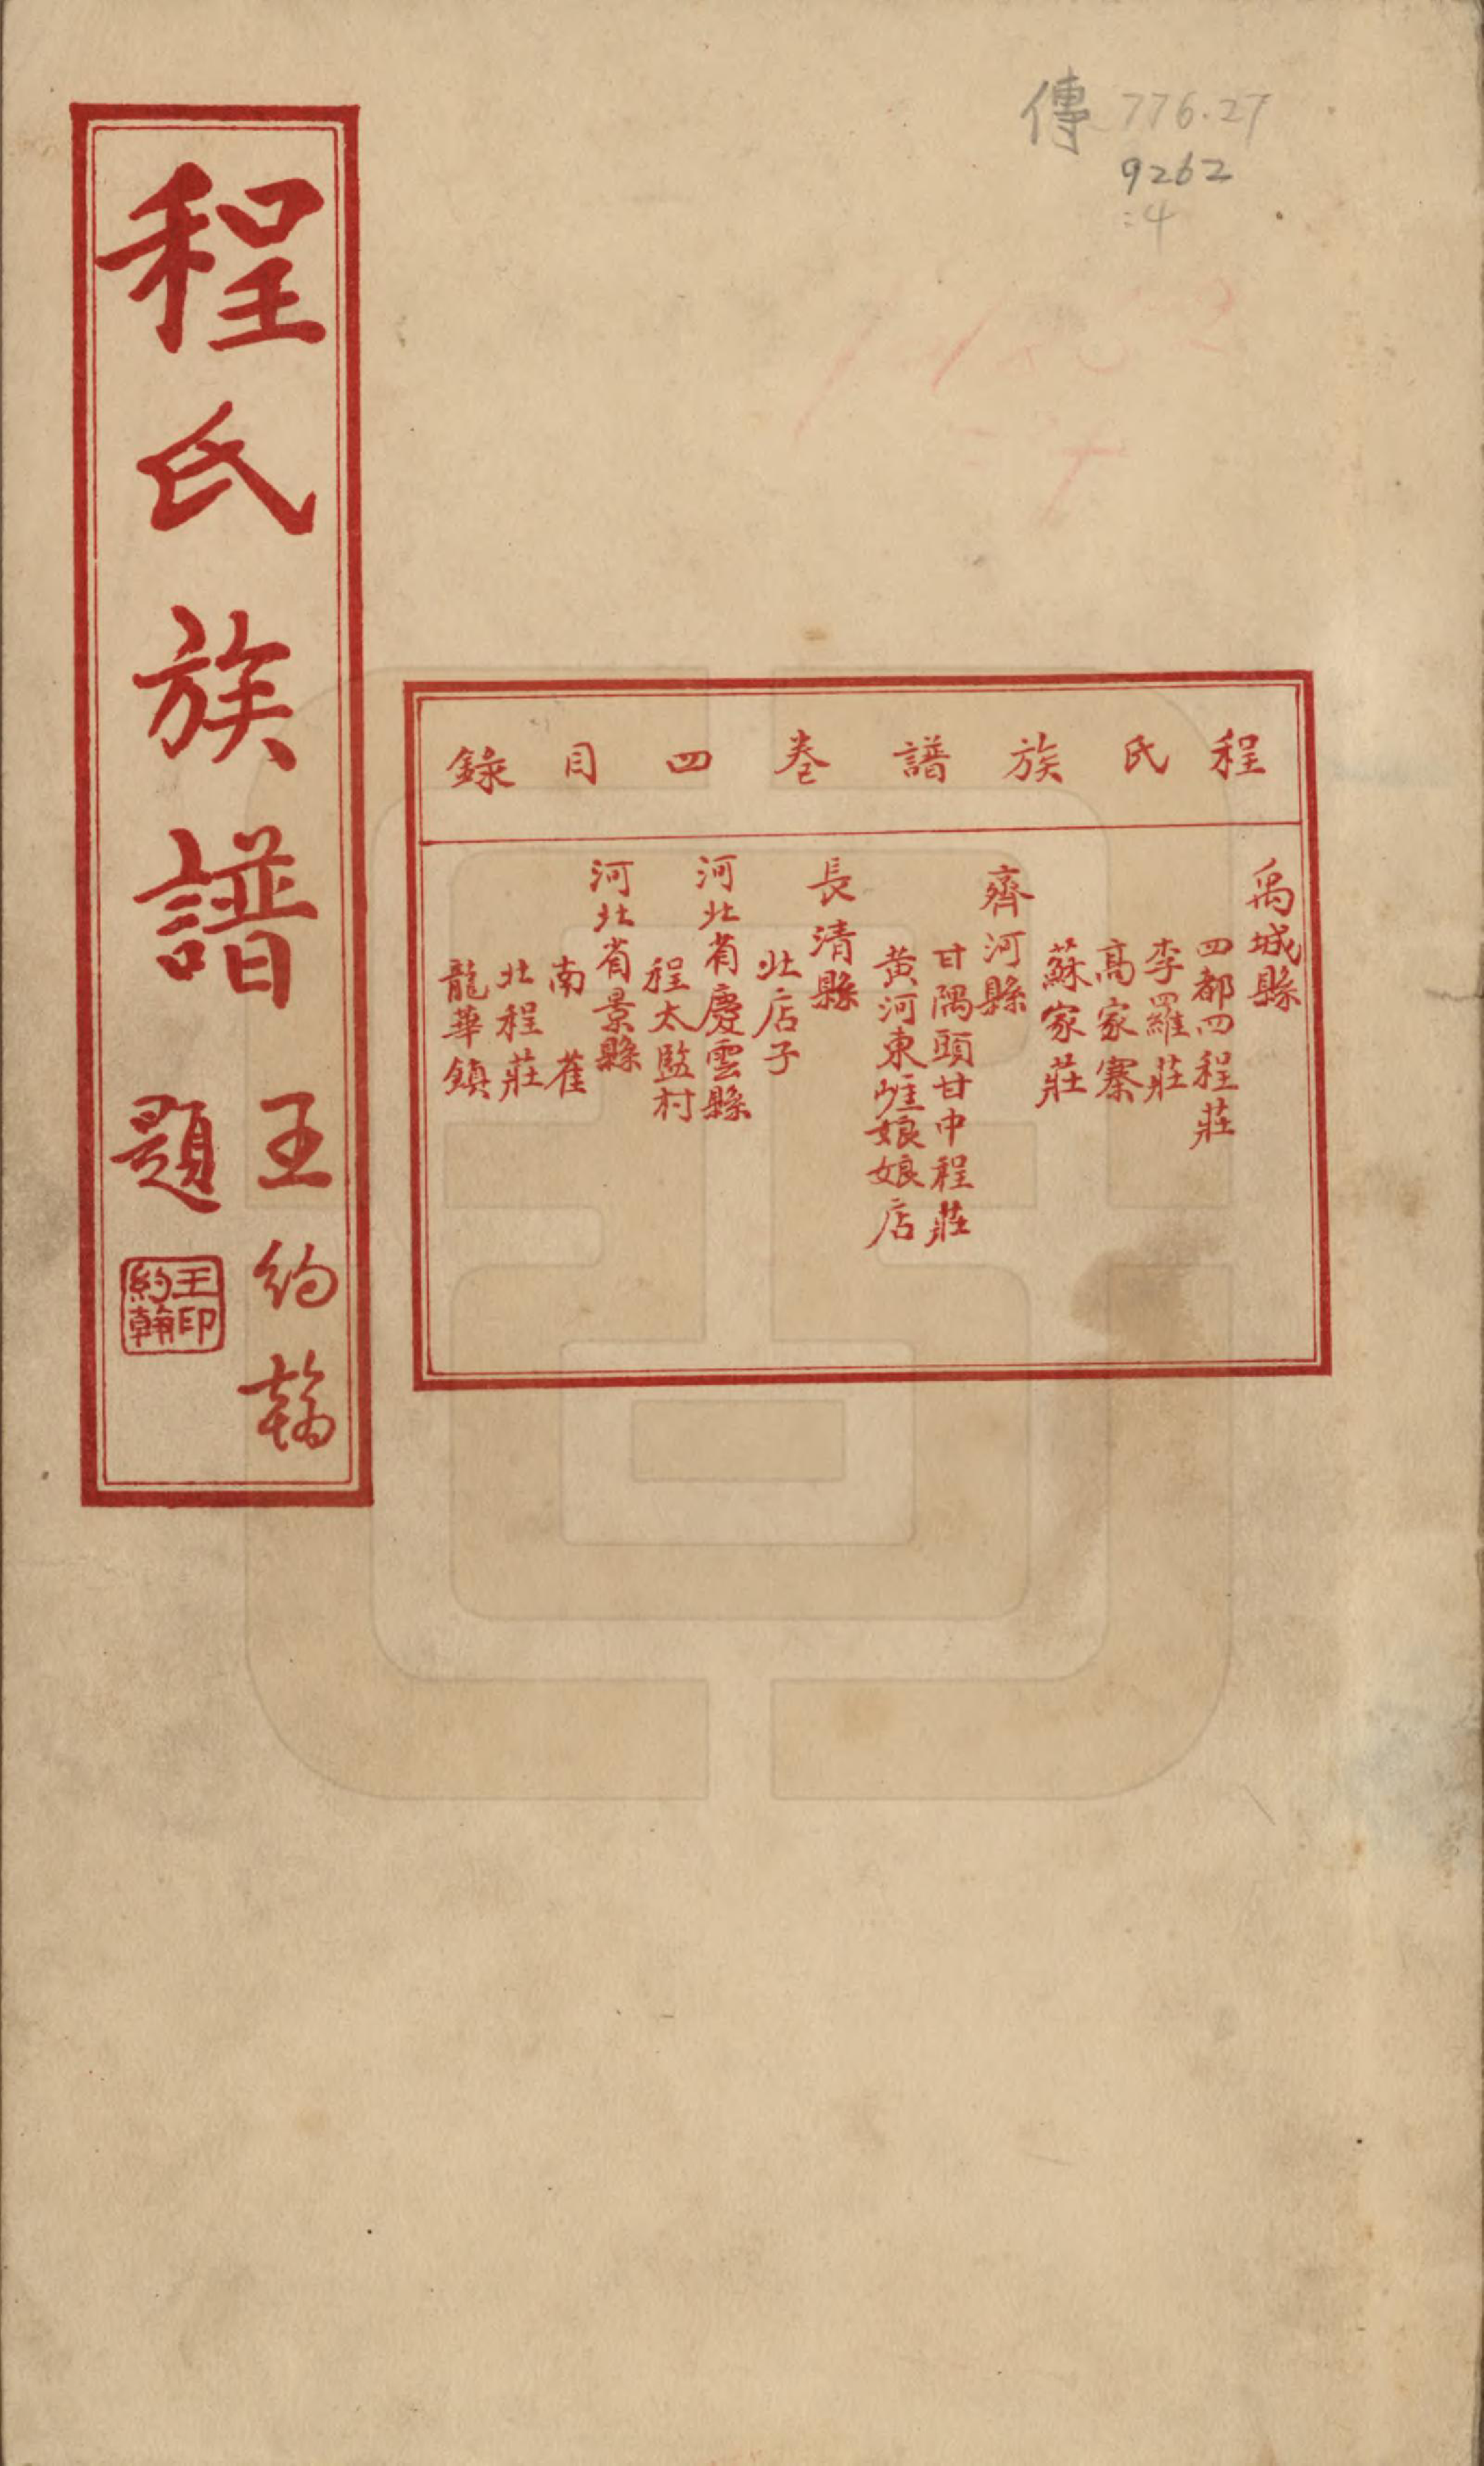 傳 776.27
9262
:4
程氏族譜卷四目錄
禹城縣
四都四程莊
李羅莊
高家寨
蘇家莊
齊河縣
甘隅頭甘中程莊
黃河東崕娘娘店
長清縣
北店子
河北省慶雲縣
程太監村
河北省景縣
南雈
北程莊
龍華鎮
程氏族譜
王約翰
題
王印約翰